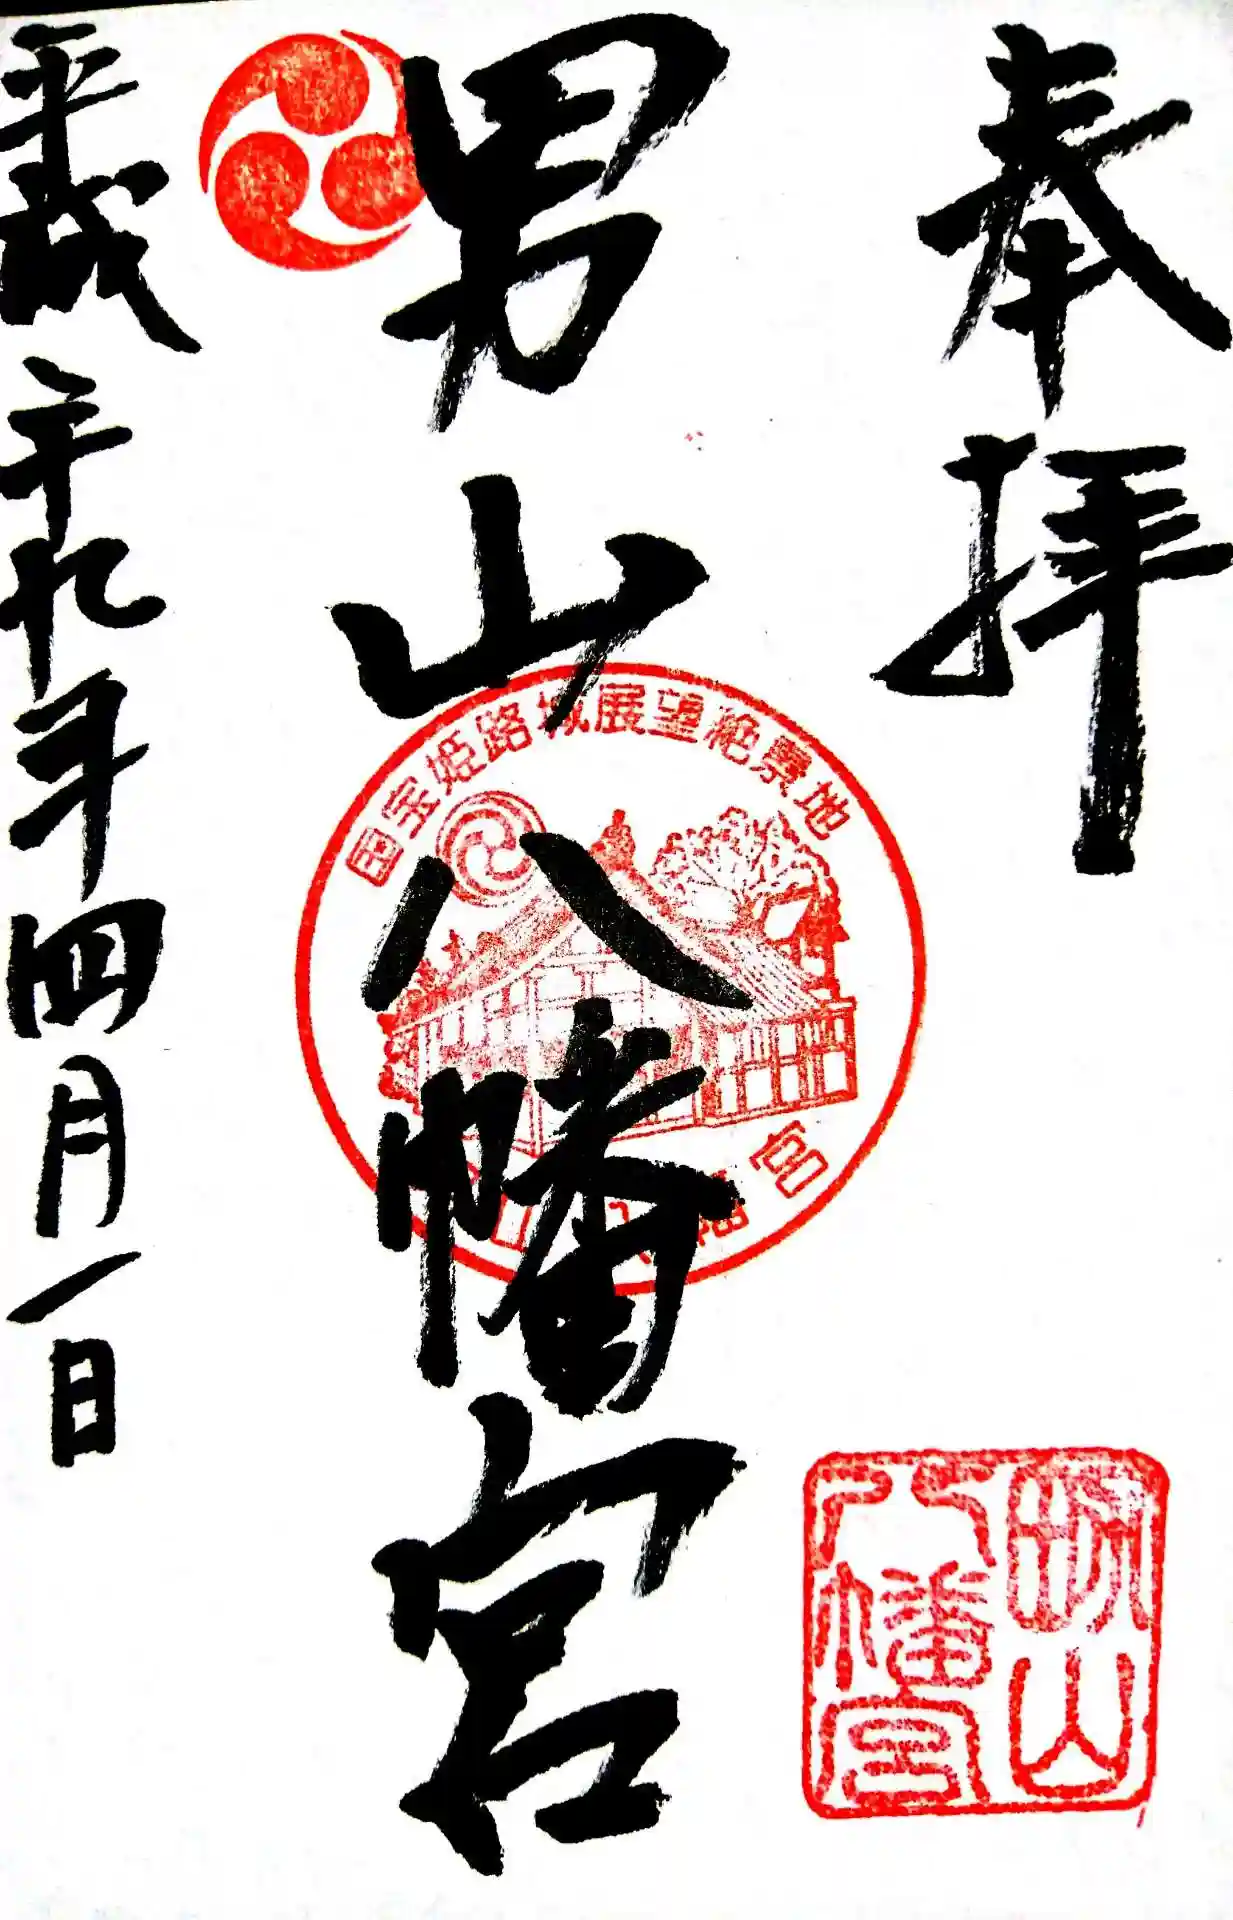 奉拝
男山八幡宮
国宝姫路城展望絶景地
山八幡宮
男山
八幡宮
平成二十九年四月一日